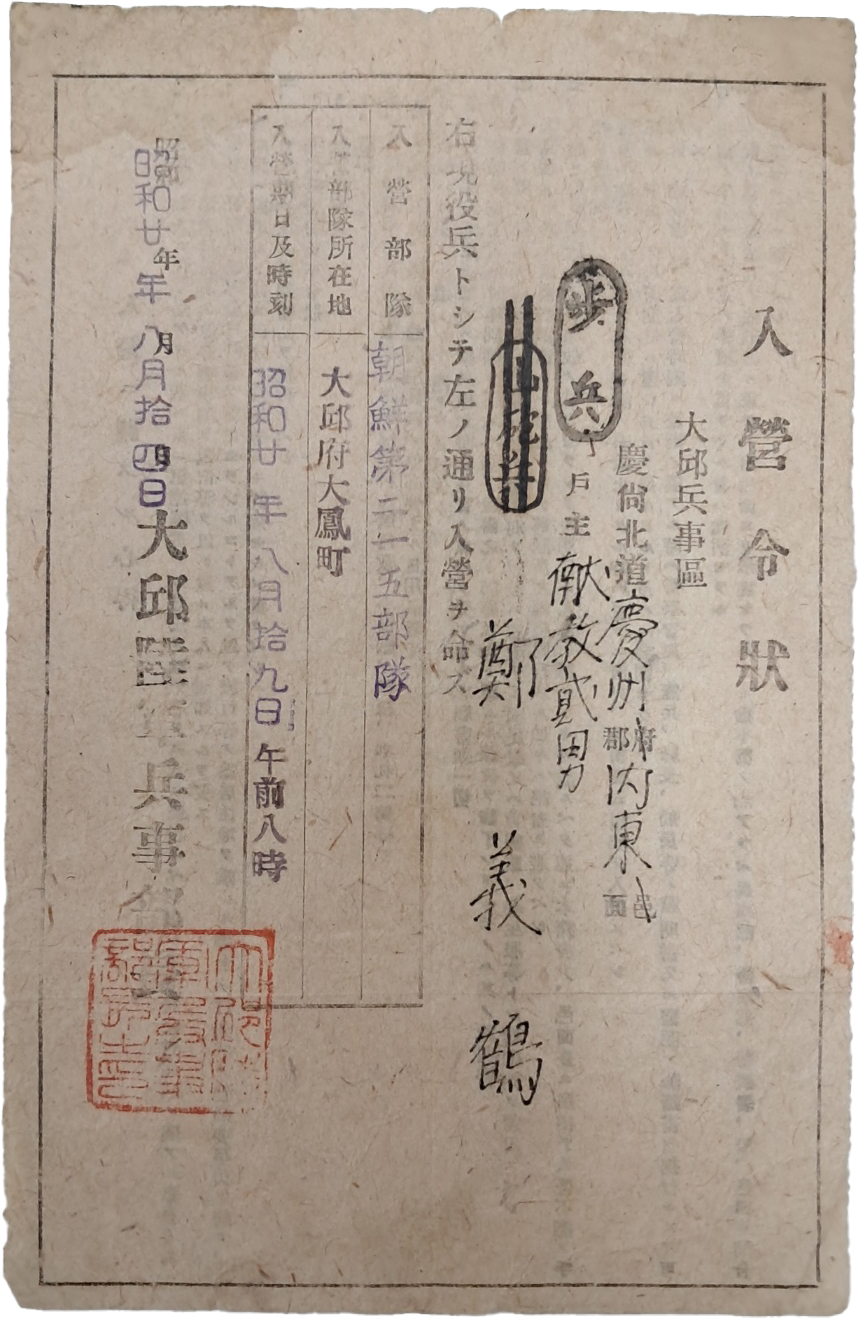 入營令狀
大邱兵事區
慶尙北道慶州郡府内東面邑
步兵
戶主 献教 貳男
鄭義鶴
右現役兵トシテ左ノ通リ入營ヲ命ス
入營部隊 朝鮮第二一五部隊
入營部隊所在地 大邱府大鳳町
入營期日及時刻 昭和廿年八月拾九日午前八時
昭和廿年八月拾四日
大邱陸軍兵事部